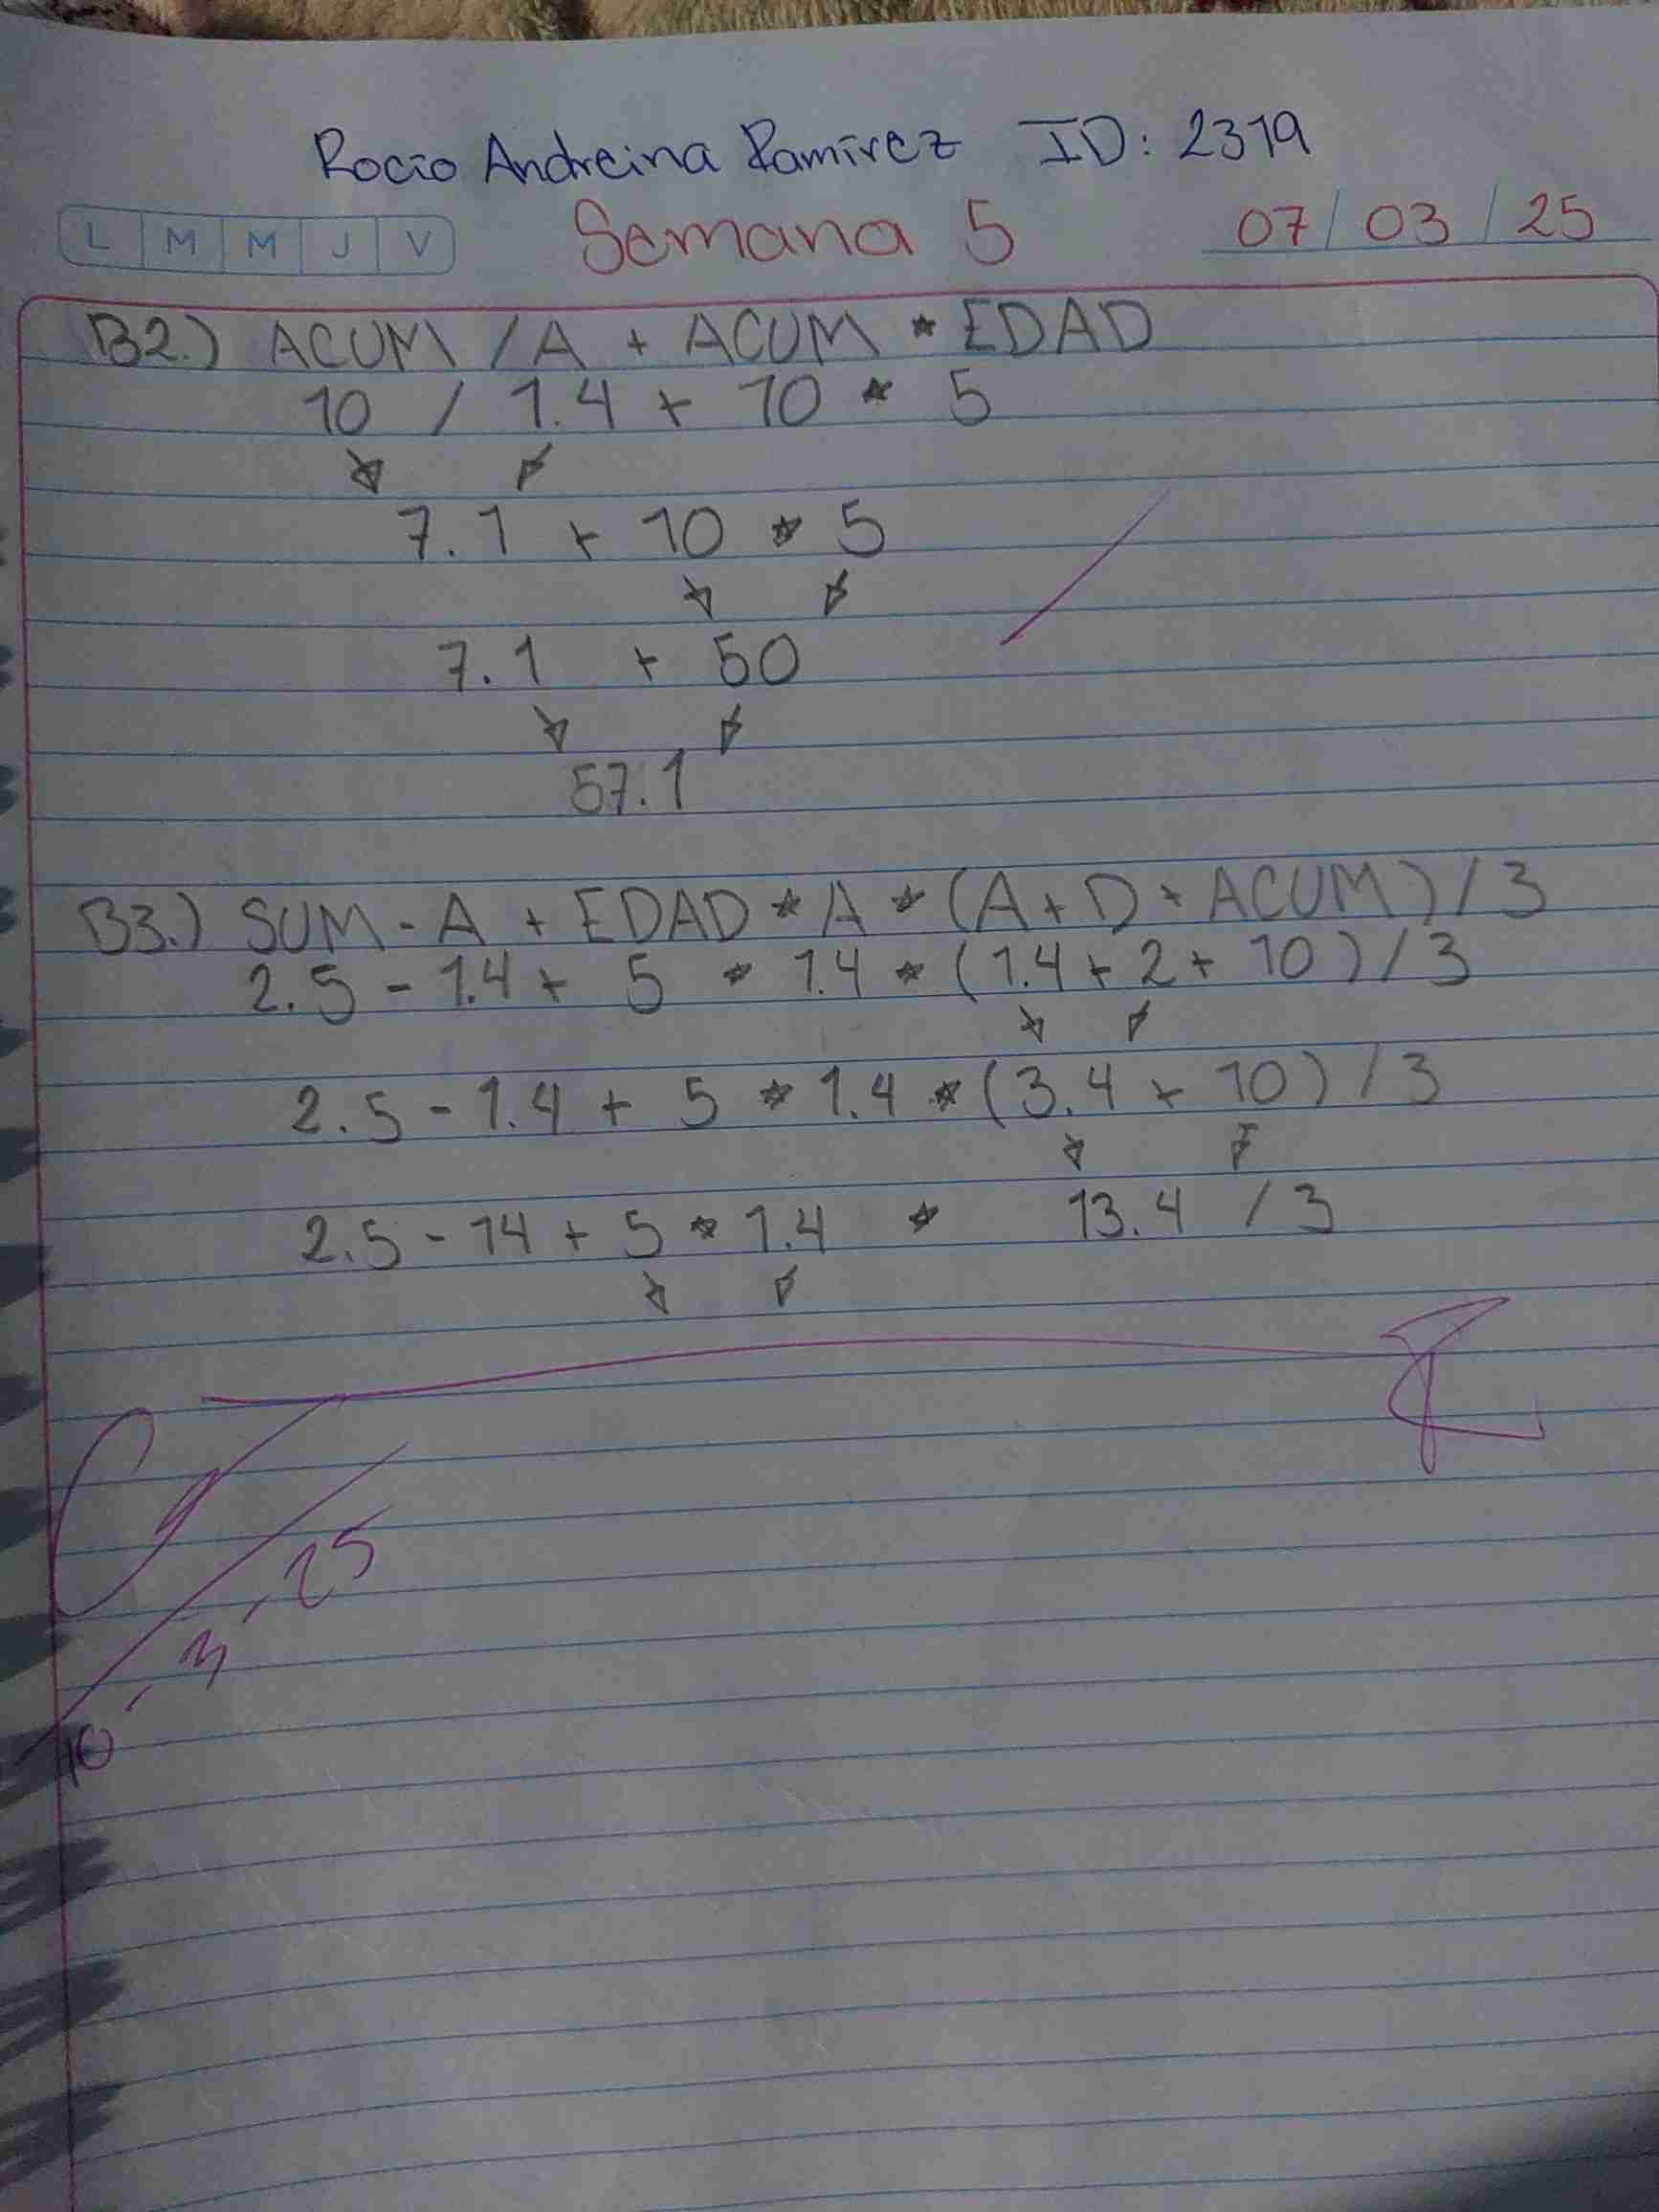 Rocío Andreina Ramírez ID: 2319
L M M J V Semana 5 07/03/25
B2.) ACUM / A + ACUM * EDAD
10 / 1.4 + 10 * 5
7.1 + 10 * 5
7.1 + 50
57.1
B3.) SUM - A + EDAD * A * (A + D + ACUM) / 3
2.5 - 1.4 + 5 * 1.4 * (1.4 + 2 + 10) / 3
2.5 - 1.4 + 5 * 1.4 * (3.4 + 10) / 3
2.5 - 14 + 5 * 1.4 * 13.4 / 3
10, 3, 25